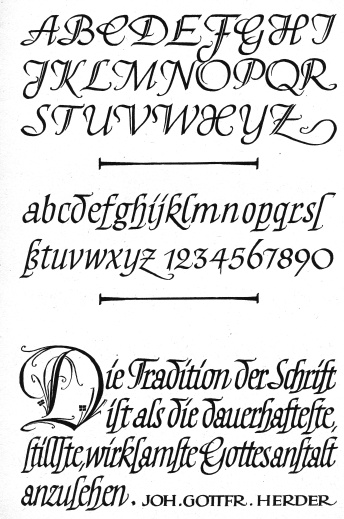 ABCDEFGHI
JKLMNOPQR
STUVWXYZ
abcdefghijklmnopqrsſ
ßtuvwxyz 1234567890
Die Tradition der Schrift
iſt als die dauerhafteſte,
ſtillſte, wirkſamſte Gottesanſtalt
anzuſehen. JOH. GOTTFR. HERDER